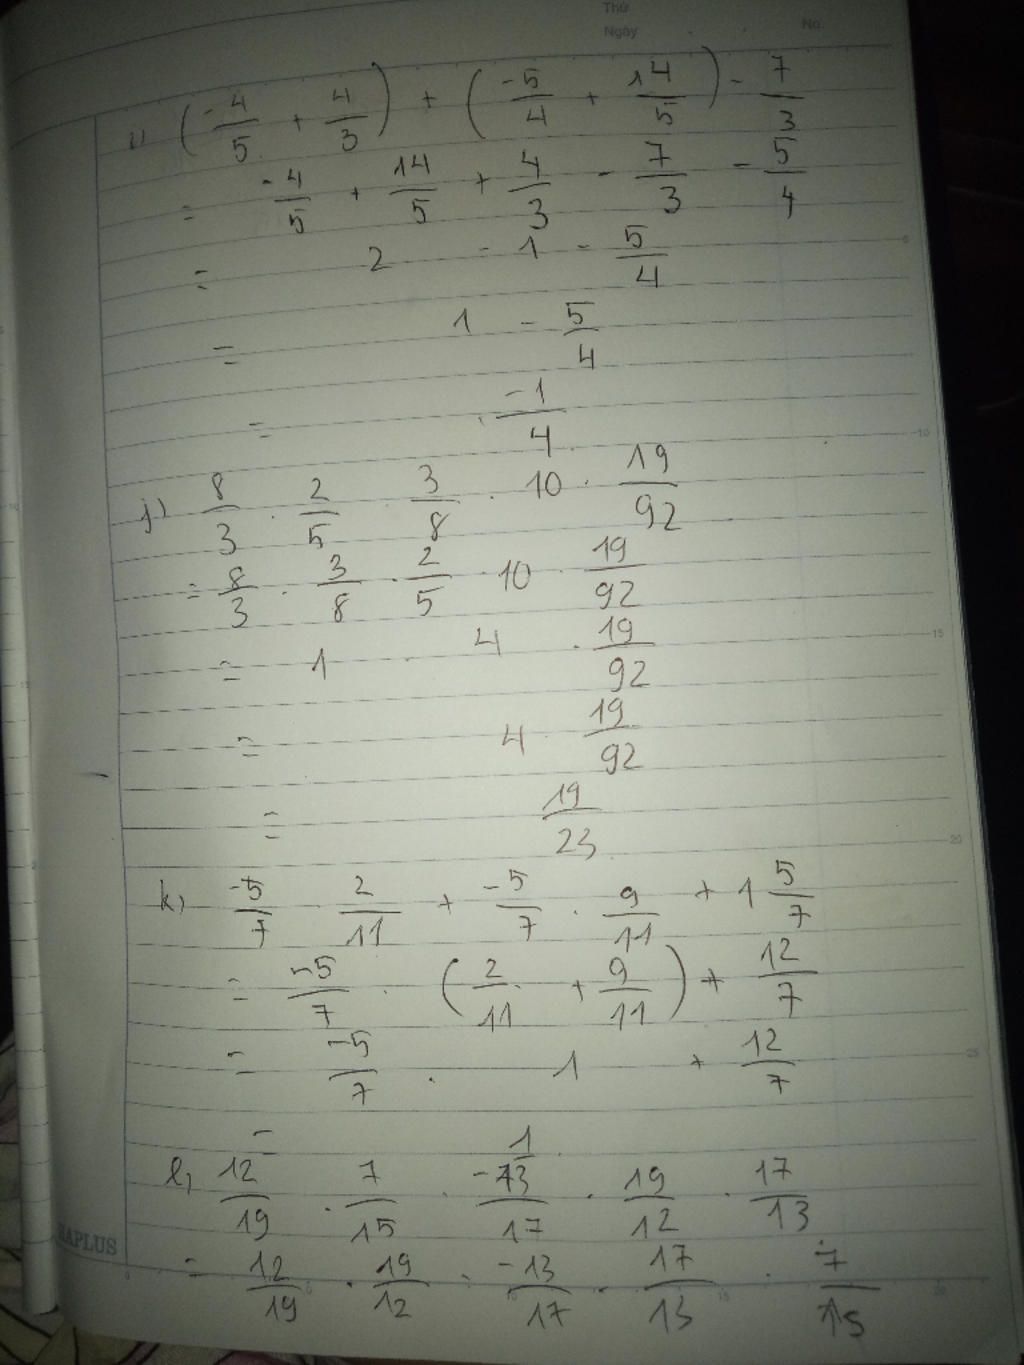 Thứ
Ngày No.
i) (-4/5 + 4/3) + (-5/4 + 14/5) - 7/3
= -4/5 + 14/5 + 4/3 - 7/3 - 5/4
= 2 - 1 - 5/4
= 1 - 5/4
= -1/4
j) 8/3 . 2/5 . 3/8 . 10 . 19/92
= 8/3 . 3/8 . 2/5 . 10 . 19/92
= 1 . 4 . 19/92
= 4 . 19/92
= 19/23
k) -5/7 . 2/11 + -5/7 . 9/11 + 1 5/7
= -5/7 . (2/11 + 9/11) + 12/7
= -5/7 . 1 + 12/7
= 1
l) 12/19 . 7/15 . -13/17 . 19/12 . 17/13
= 12/19 . 19/12 . -13/17 . 17/13 . 7/15
HAPLUS